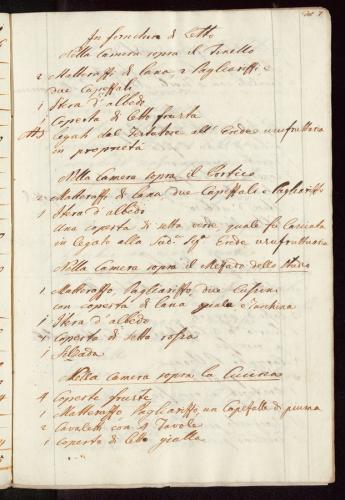 In fornitura di Letto
Nella Camera sopra il Tinello
2 Matteraffi di lana, 2 Pagliariffi e
due Capeffali
1 Itera d'albedo
1 Coperta di letto frusta
legati dal Testatore all' Erede usufruttuaria
in proprietà
Nella Camera sopra il Portico
2 Matteraffi di lana due Capeffali e Pagliariffo
1 Itera d'albedo
Una coperta di setta verde quale fù lasciata
in legato alla Sud.a Sig.a Erede usufruttuaria
Nella Camera sopra il Mezzado dello Studio
1 Matteraffo, Pagliariffo, due Cussini
con coperta di lana gialla e turchina
1 Itera d'albedo
1 coperta di setta rossa
1
Nella Camera sopra la Cucina
4 Coperte fruste
1 Matteraffo Pagliariffo, un Capeffalle di piuma
2 Cavaletti con 4 Tavole
1 Coperta di letto gialla